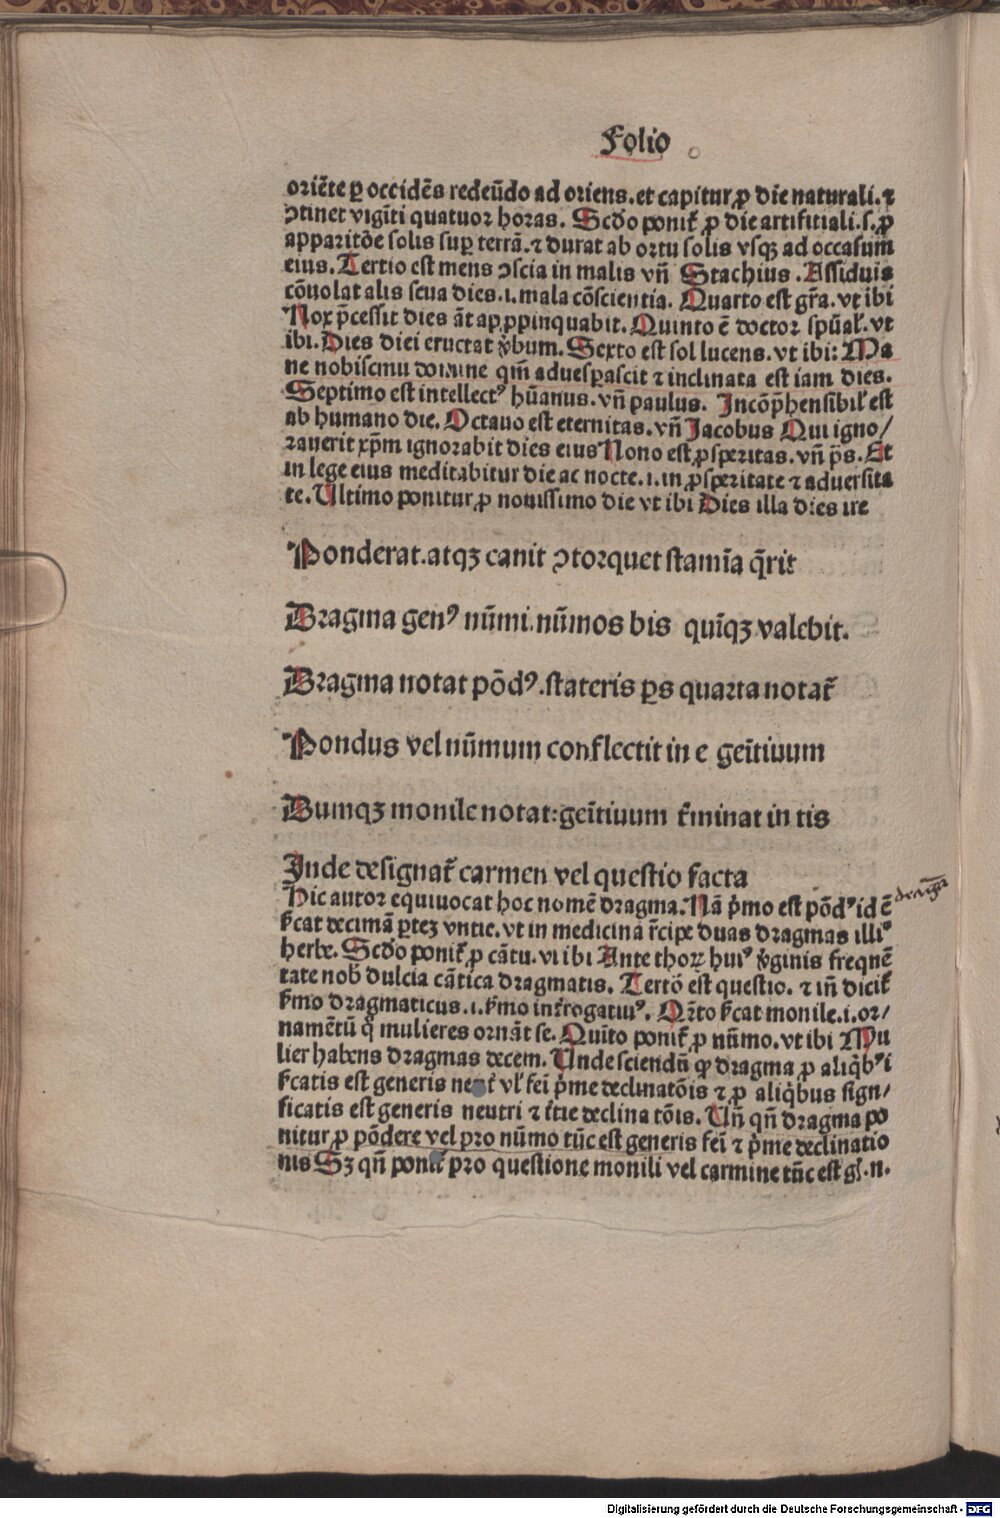 Folio
oriēte ꝑ occidēs redeūdo ad oriens. et capitur ꝓ die naturali. ⁊
ↄtinet vigīti quatuor horas. Scđo poniť ꝓ die artifitiali. s. ꝓ
apparitōe solis suꝑ terrā. ⁊ durat ab ortu solis vsqꝫ ad occasum
eius. Tertio est mens ↄscia in malis vñ Stachius. Assiduis
cōuolat alis seua dies. i. mala cōscientia. Quarto est gr̄a. vt ibi
Nox p̄cessit dies āt apꝓpinquabit. Quinto ē doctor spūaľ. vt
ibi. Dies diei eructat v̄bum. Sexto est sol lucens. vt ibi: Ma
ne nobiscnu domine qm̄ aduesꝑascit ⁊ inclinata est iam dies.
Septimo est intellectꝰ hūanus. vñ paulus. Incōp̄hensibiľ est
ab humano die. Octauo est eternitas. vñ Jacobus Qui igno/
rauerit xp̄m ignorabit dies eius Nono est ꝓsperitas. vñ p̄s. Et
in lege eius meditabitur die ac nocte. i. in ꝓsperitate ⁊ aduersita
te. Ultimo ponitur ꝓ nouissimo die vt ibi Dies illa dies ire
Ponderat. atqꝫ canit ↄtorquet stamīa q̄rit
Dragma genꝰ nūmi. nūmos bis quīqꝫ valebit.
Dragma notat pōdꝰ. stateris ꝑs quarta notať
Pondus vel nūmum conflectit in e geītiuum
Dumqꝫ monile notat: geītiuum ťminat in tis
Inde designať carmen vel questio facta
Hic autor equiuocat hoc nomē dragma. Nā p̄mo est pōdꝰ id ē
ẜcat decimā ꝑteꝫ vntie. vt in medicina r̄cipe duas dragmas illiꝰ
herbe. Scđo poniť ꝓ cātu. vt ibi Ante thoꝝ huiꝰ v̄ginis frequē
tate nob̄ dulcia cātica dragmatis. Tertō est questio. ⁊ iñ diciť
ẜmo dragmaticus. i. ẜmo inťrogatiuꝰ. Qr̄to ẜcat monile. i. or/
namētū q̊ mulieres ornāt se. Quīto poniť ꝓ nūmo. vt ibi Mu
lier habens dragmas decem. Unde sciendū ꝙ dragma ꝓ aliq̄bꝰ i
ẜcatis est generis vľ fei p̄me declinatōis ⁊ ꝓ aliq̄bus sign/
ficatis est generis neutri ⁊ ťtie declina tōis. Uñ qñ dragma po
nitur ꝓ pōdere vel pro nūmo tūc est generis fei ⁊ p̄me declinatio
nis Sꝫ qñ poniť pro questione monili vel carmine tūc est gľ. n.
Digitalisierung gefördert durch die Deutsche Forschungsgemeinschaft - DFG